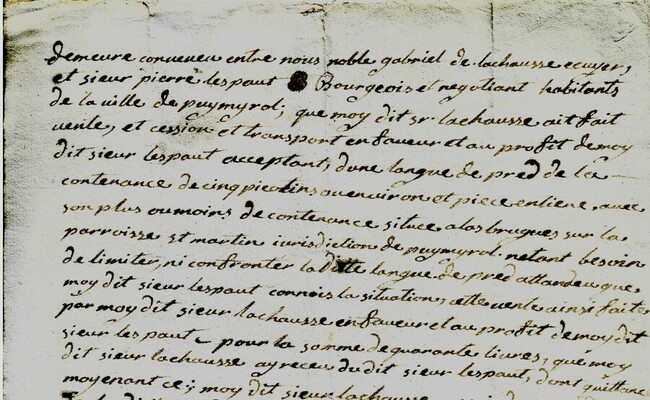 demeure conveneu entre nous noble gabriel de lachausse ecuyer,
et sieur pierre lespaut Bourgeois et negotiant habitants
de la ville de puymyrol; que moy dit sr. lachausse ait fait
vente, et cession et transport en faveur et au profit de moy
dit sieur lespaut acceptant, dune langue de pred de la
contenance de cinq picotins ou environ et piece entiere, avec
son plus ou moins de contenance situee a las brugues sur la
parroisse st martin iurisdiction de puymyrol. netant besoin
de limiter, ni confronter la ditte langue de pred attandeu que
moy dit sieur lespaut connois la situation, cette vente ainsi faite
par moy dit sieur lachausse en faveur et au profit de moy dit
sieur lespaut pour la somme de quarante livres, que moy
dit sieur lachausse ay receu du dit sieur lespaut, dont quittance
moyenant ce; moy dit sieur lachausse